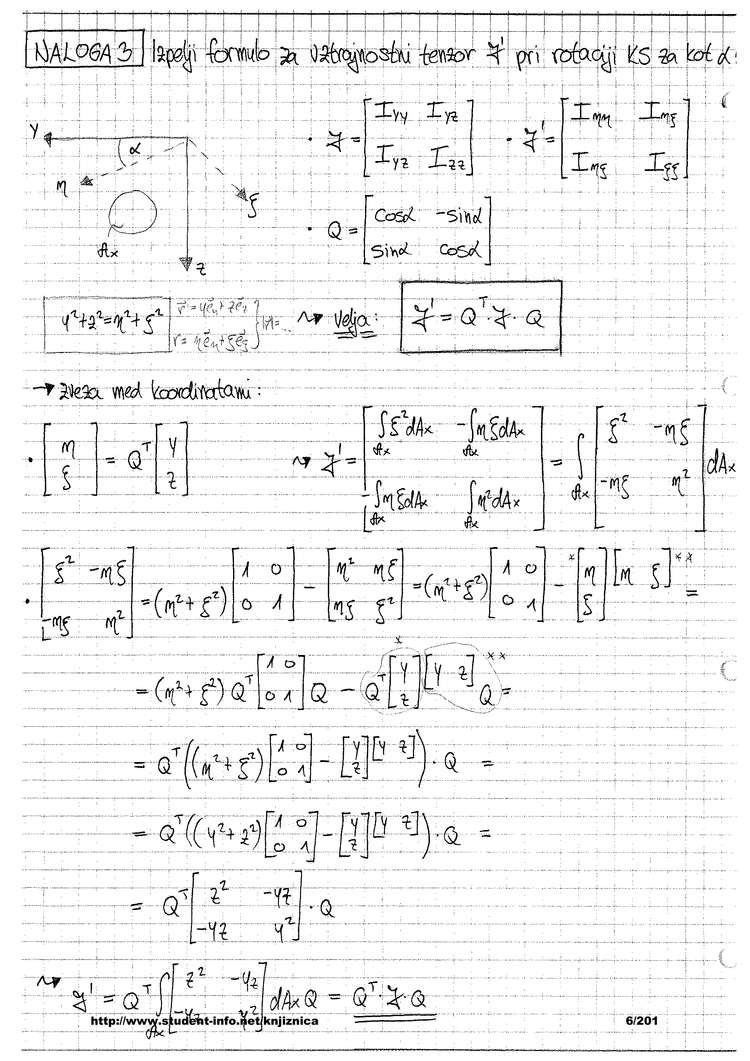 NALOGA 3 Izpelji formulo za vztrajnostni tenzor J' pri rotaciji KS za kot α:
y α η ξ Ax z
· J = [Iyy Iyz; Iyz Izz] · J' = [Iηη Iηξ; Iηξ Iξξ]
· Q = [cosα -sinα; sinα cosα]
y²+z²=η²+ξ² ⇝ Velja: J' = Qᵀ·J·Q
→ zveza med koordinatami:
· [η; ξ] = Qᵀ [y; z] ⇝ J' = [∫ξ²dAx -∫ηξdAx; -∫ηξdAx ∫η²dAx] = ∫ [ξ² -ηξ; -ηξ η²] dAx
· [ξ² -ηξ; -ηξ η²] = (η²+ξ²) [1 0; 0 1] - [η² ηξ; ηξ ξ²] = (η²+ξ²) [1 0; 0 1] - *[η; ξ] [η ξ]** =
= (η²+ξ²) Qᵀ [1 0; 0 1] Q - Qᵀ [y; z]* [y z] Q** =
= Qᵀ((η²+ξ²) [1 0; 0 1] - [y; z] [y z])·Q =
= Qᵀ((y²+z²) [1 0; 0 1] - [y; z] [y z])·Q =
= Qᵀ [z² -yz; -yz y²]·Q
⇝ J' = Qᵀ ∫ [z² -yz; -yz y²] dAx Q = Qᵀ·J·Q
http://www.student-info.net/knjiznica 6/201